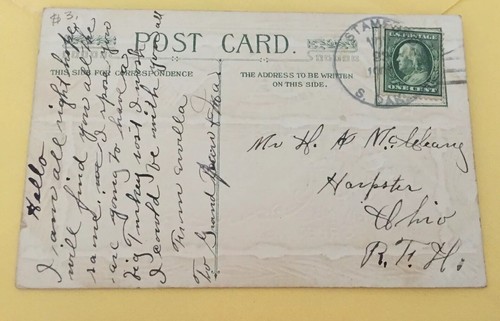 $3.
POST CARD.
THIS SIDE FOR CORRESPONDENCE
THE ADDRESS TO BE WRITTEN
ON THIS SIDE.
S. DAK.
U.S. POSTAGE
ONE CENT
Hello
I am all right hope
will find you all the
same. I spose you
are going to have a
big Turkey I wish
I could be with you all
From
To Grand Paw & Maw
Mr H A McCleary
Harpster
Ohio